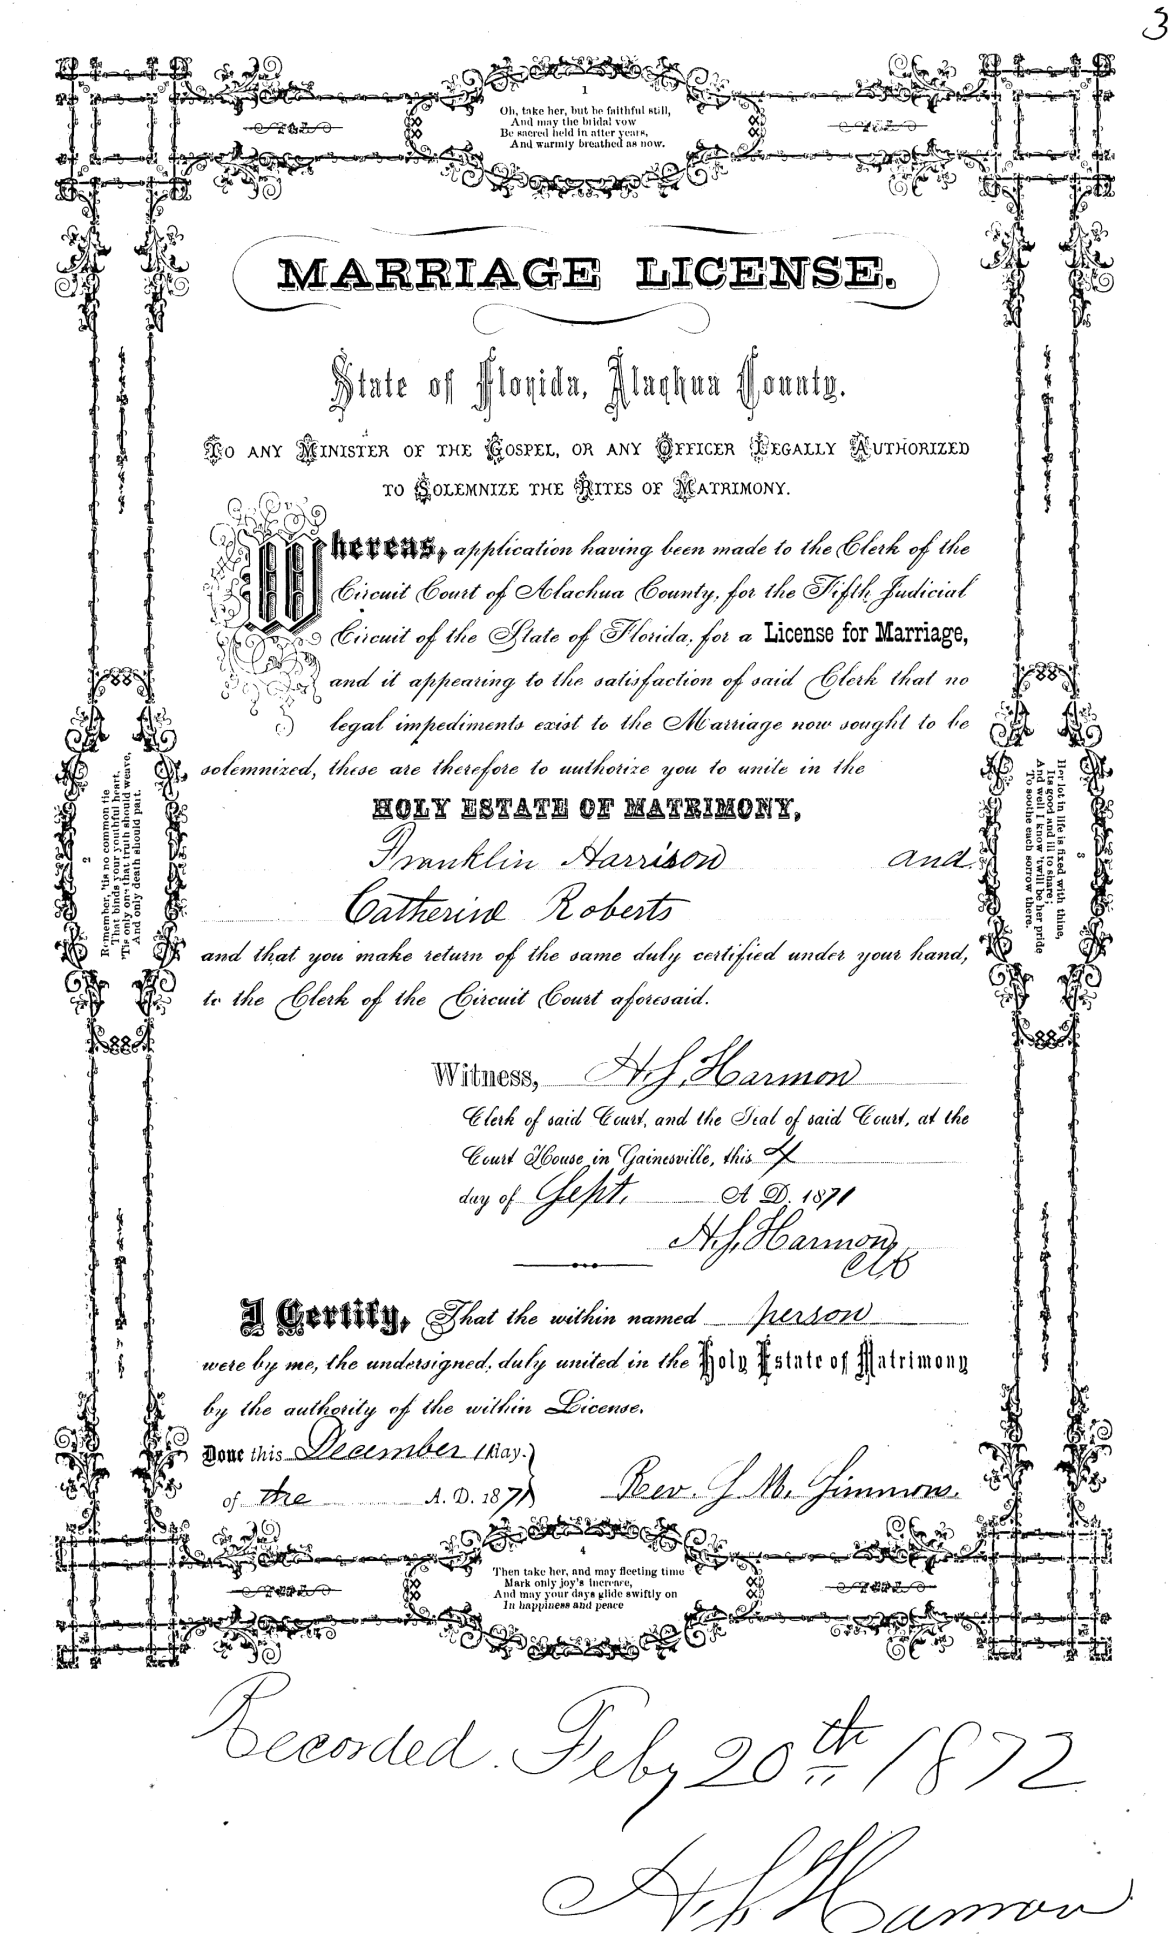 3
1
Oh, take her, but be faithful still,
And may the bridal vow
Be sacred held in after years,
And warmly breathed as now.
MARRIAGE LICENSE.
State of Florida, Alachua County.
TO ANY MINISTER OF THE GOSPEL, OR ANY OFFICER LEGALLY AUTHORIZED
TO SOLEMNIZE THE RITES OF MATRIMONY.
Whereas, application having been made to the Clerk of the
Circuit Court of Alachua County, for the Fifth Judicial
Circuit of the State of Florida, for a License for Marriage,
and it appearing to the satisfaction of said Clerk that no
legal impediments exist to the Marriage now sought to be
solemnized, these are therefore to authorize you to unite in the
HOLY ESTATE OF MATRIMONY,
Franklin Harrison and
Catherine Roberts
and that you make return of the same duly certified under your hand,
to the Clerk of the Circuit Court aforesaid.
2
Remember, 'tis no common tie
That binds your youthful heart,
'Tis only one that truth should weave,
And only death should part.
3
Her lot in life is fixed with thine,
Its good and ill to share;
And well I know 'twill be her pride
To soothe each sorrow there.
Witness, H. S. Harmon
Clerk of said Court, and the Seal of said Court, at the
Court House in Gainesville, this 4
day of Sept. A D. 1871
H. S. Harmon
Clk
I Certify, That the within named person
were by me, the undersigned, duly united in the Holy Estate of Matrimony
by the authority of the within License.
Done this December 11 day.
of the A. D. 1871
Rev. G. M. Simmons.
4
Then take her, and may fleeting time
Mark only joy's increase,
And may your days glide swiftly on
In happiness and peace
Recorded. Feby 20th 1872
H. S. Harmon